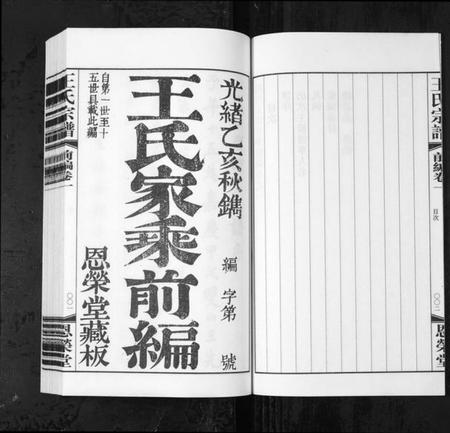 王氏宗譜
前編卷一
目次
〇〇二
恩榮堂
光緒乙亥秋鐫
編字第
號
王氏家乘前編
自第一世至十
五世具載此編
恩榮堂藏板
王氏宗譜
前編卷一
〇〇一
恩榮堂